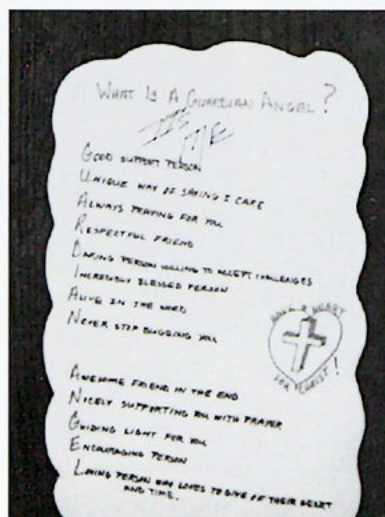 WHAT IS A GUARDIAN ANGEL?
IT'S ME
GOOD SUPPORT PERSON
UNIQUE WAY OF SAYING I CARE
ALWAYS PRAYING FOR YOU
RESPECTFUL FRIEND
DARING PERSON WILLING TO ACCEPT CHALLENGES
INCREDIBLY BLESSED PERSON
ALIVE IN THE WORD
NEVER STOP BUGGING YOU
HAVE A HEART
FOR CHRIST!
AWESOME FRIEND IN THE END
NICELY SUPPORTING YOU WITH PRAYER
GUIDING LIGHT FOR YOU
ENCOURAGING PERSON
LOVING PERSON WHO LOVES TO GIVE OF THEIR HEART
AND TIME.